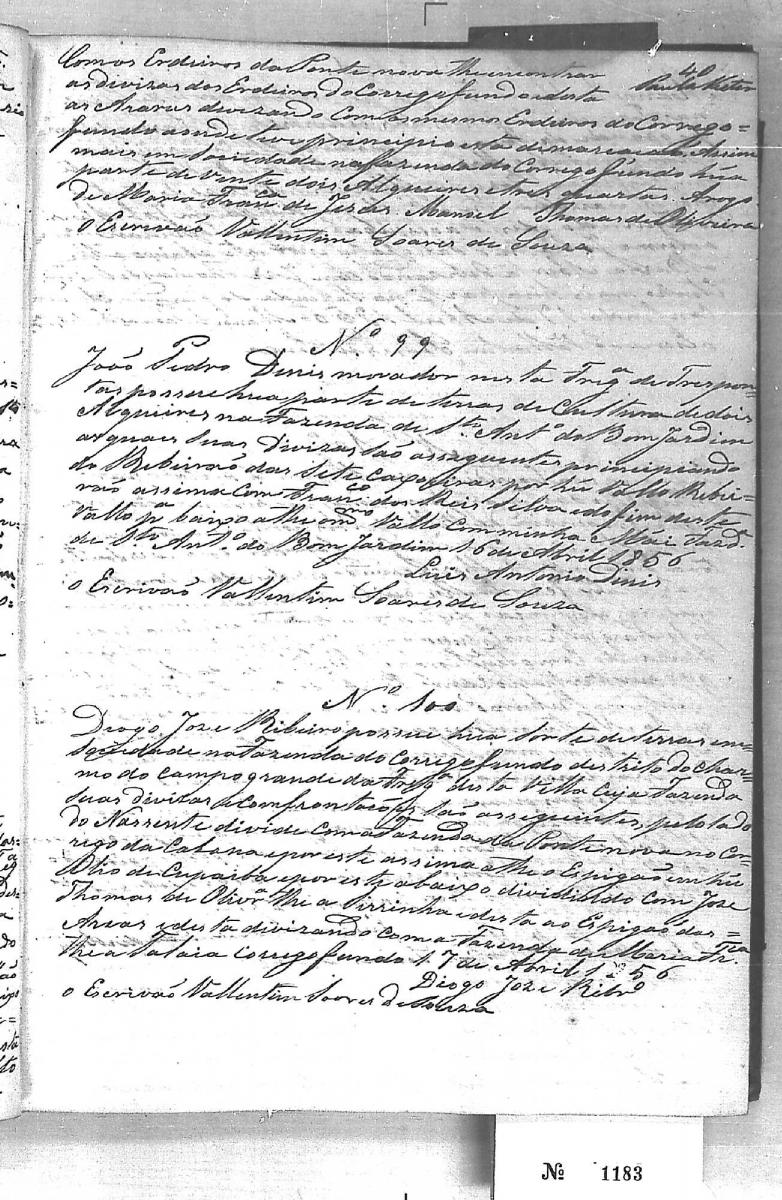 40
Paula Victor
Com os Erdeiros da Ponte nova the encontrar
as divizas dos Erdeiros do Corrego fundo e desta
as Araras devizando com os mesmos Erdeiros do Corrego=
fundo aonde teve principio esta demarcação Assim
mais em Sociedade na fazenda do Corrego fundo hua
parte de vente dois Alqueires e tres quartas. Arogo
de Maria Fran.ca de Jezus. Manoel Thomas de Oliveira
O Escrivaõ Vallentim Soares de Souza
N.o 99
Joaõ Pedro Dinis morador nesta Frg.a de Trespon-
tas possue hua parte de terras de Cultura de dois
Alqueires na Fazenda de S.to Ant.o do Bom Jardim
as quais Suas Divizas são as seguentes principiando
do Ribeiraõ das Sete Caxoeiras por hú Vallo Ribei-
raõ assima com Fran.co dos Reis Silva e do fim deste
Vallo p.a baixo athe o m.mo Vallo com minha Mai Fazd.a
de S.to Ant.o do Bom Jardim 16 de Abril 1856
Luis Antonio Dinis
O Escrivaõ Vallentim Soares de Souza
N.o 100
Diogo Joze Ribeiro possue hua Sorte de terras em
Sociedade na Fazenda do Corrego fundo destrito do Char-
mo do Campo grande da Freg.a desta Villa Cuja Fazenda
Suas divizas e comfrontacoes são as seguentes, pelo lado
do Nassente divide com a Fazenda da Ponte nova no Cor-
rego da Cabana e por este assima athe o Espigaõ em hú
Olio de Cupaiba e por este abaixo dividindo com Joze
Thomas de Oliv.ra the a Serrinha e desta ao Espigaõ das
Araras e desta divizando com a Fazenda de Maria Fr.ca
the a Corrego fundo 17 de Avril 1856
Diogo Joze Ribr.o
O Escrivaõ Vallentim Soares de Souza
№ 1183